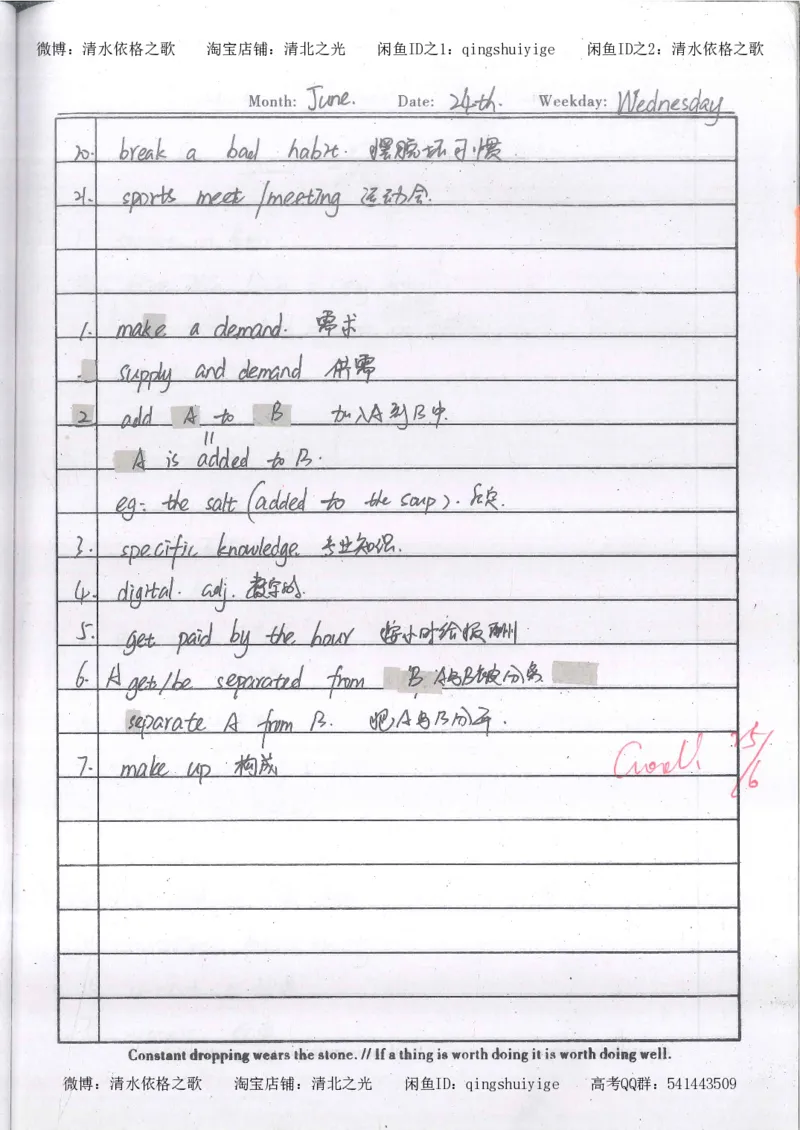 微博：清水依格之歌 淘宝店铺：清北之光 闲鱼ID之1：qingshuiyige 闲鱼ID之2：清水依格之歌
Month: June. Date: 24th. Weekday: Wednesday
20. break a bad habit. 摆脱坏习惯
21. sports meet/meeting 运动会.
1. make a demand. 需求
supply and demand 供需
2 add A to B 加入A到B中.
=
A is added to B.
eg: the salt (added to the soup). 后定.
3. specific knowledge. 专业知识.
4. digital. adj. 数字的.
5. get paid by the hour 按小时给报酬
6. A get/be separated from B A与B被分离
separate A from B. 把A与B分开.
7. make up 构成
Good! 25/6
Constant dropping wears the stone. // If a thing is worth doing it is worth doing well.
微博：清水依格之歌 淘宝店铺：清北之光 闲鱼ID：qingshuiyige 高考QQ群：541443509